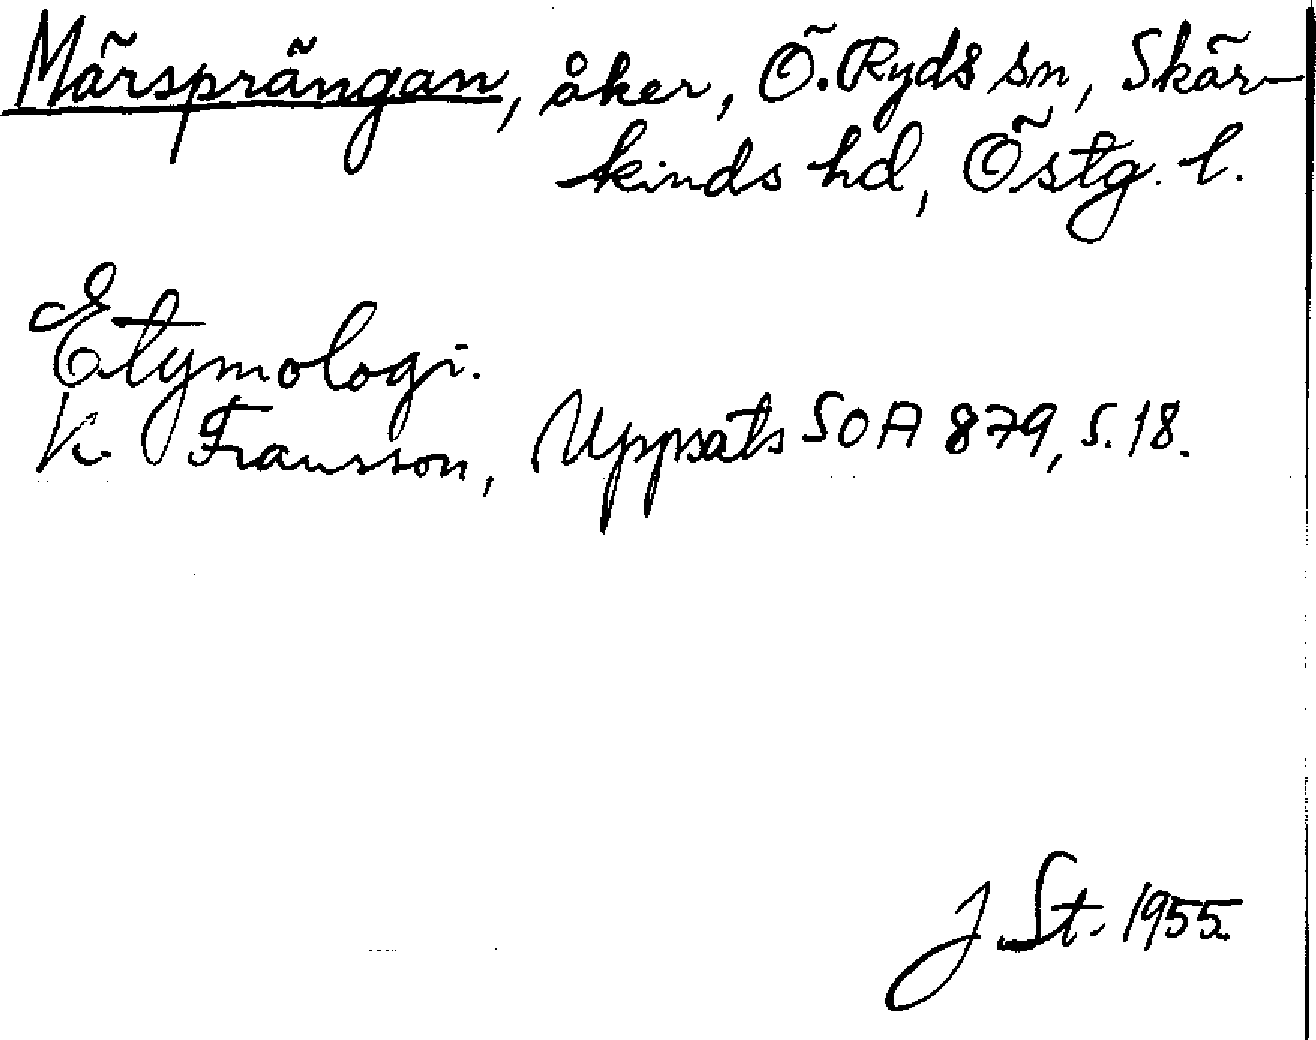 Märsprängan, åker, Ö. Ryds sn, Skär-
kinds hd, Östg. l.
Etymologi.
K. Fransson, Uppsats SOA 879, s. 18.
J. St. 1955.